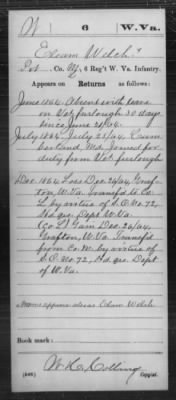 W 6 W.Va.
Elcam Welch
Pvt., Co. M, 6 Reg't W. Va. Infantry.
Appears on
Returns
as follows:
June 1864 Absent with leave
on Vet. furlough 30 days
since June 21/64.
July 1864 July 21/64, Cum-
berland, Md. Joined for
duty from Vet. furlough
Dec. 1864 Loss Dec. 26/64, Graf-
ton, W.Va. Transf'd to Co.
L by virtue of S.O. No. 72,
Hd. qrs. Dept W.Va.
(Co. L) Gain Dec. 26/64,
Grafton, W.Va. Transf'd
from Co. M by virtue of
S.O. No. 72, Hd. qrs. Dept
of W.Va.
Name appears also as Elam Welch
Book mark:
W. H. Collins
(546) Copyist.